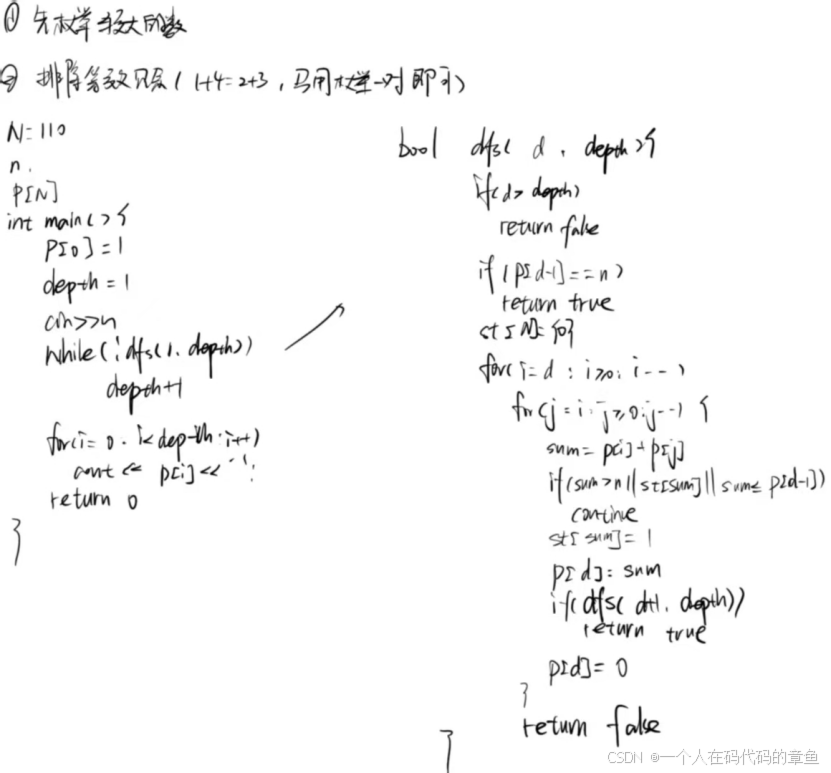 ① 先枚举较大的数
② 排除等效冗余（1+4=2+3，只用枚举一对即可）
N=110
n.
P[N]
int main(){
P[0]=1
depth=1
cin>>n
while(!dfs(1.depth))
depth+1
for(i=0.i<depth.i++)
cout<< p[i]<<' ';
return 0
}
bool dfs( d, depth){
if(d>depth)
return false
if(P[d-1]==n)
return true
st[N]={0}
for(i=d;i≥0;i--)
for(j=i;j≥0;j--) {
sum=p[i]+p[j]
if(sum>n||st[sum]||sum≤p[d-1])
continue
st[sum]=1
p[d]=sum
if(dfs(d+1, depth))
return true
p[d]=0
}
return false
}
CSDN @一个人在码代码的章鱼